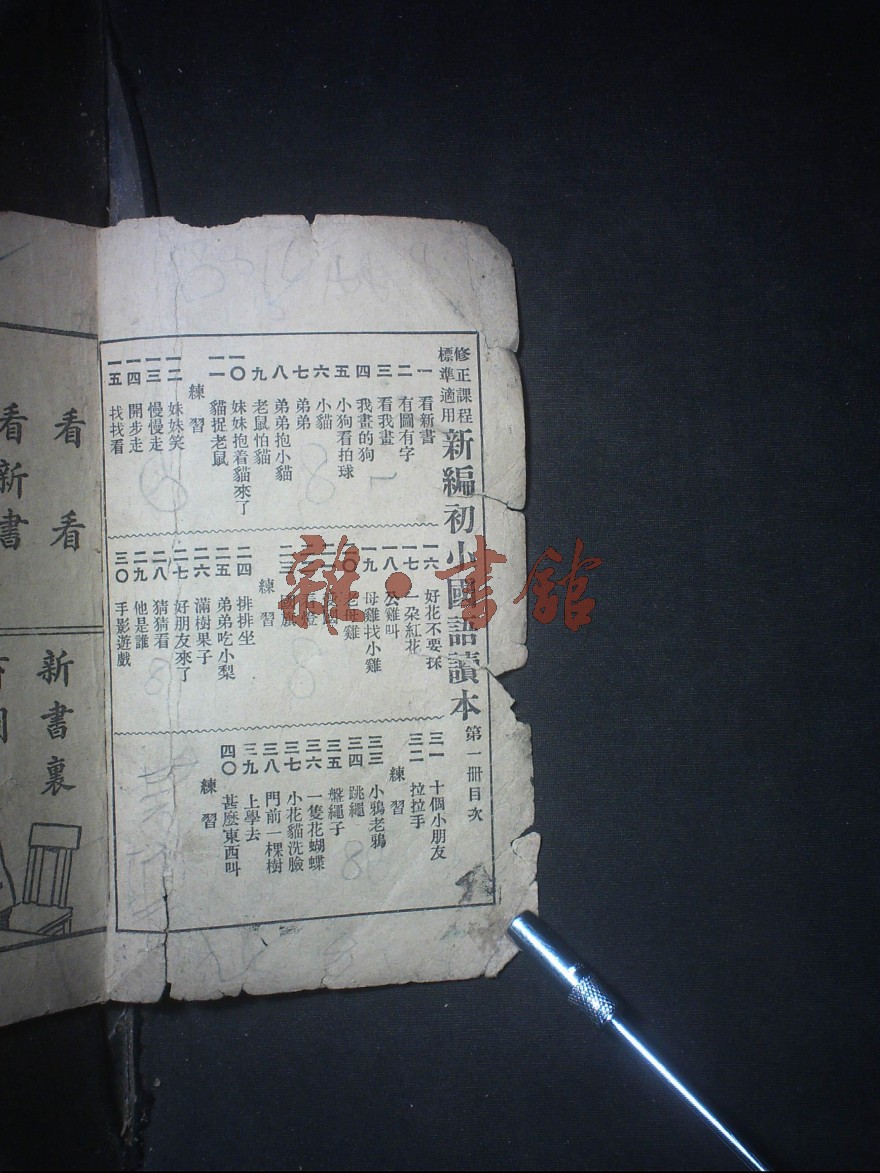 修正課程
標準適用
新編初小國語讀本 第一冊目次
一 看新書
二 有圖有字
三 看我畫
四 我畫的狗
五 小狗看拍球
六 小貓
七 弟弟
八 弟弟抱小貓
九 老鼠怕貓
一〇 妹妹抱着貓來了
一一 貓捉老鼠
練習
一二 妹妹笑
一三 慢慢走
一四 開步走
一五 找找看
一六 好花不要採
一七 一朶紅花
一八 公雞叫
一九 母雞找小雞
二〇 老母雞
二三 國旗
練習
二四 排排坐
二五 弟弟吃小梨
二六 滿樹果子
二七 好朋友來了
二八 猜猜看
二九 他是誰
三〇 手影遊戲
三一 十個小朋友
三二 拉拉手
練習
三三 小鴉老鴉
三四 跳繩
三五 盤繩子
三六 一隻花蝴蝶
三七 小花貓洗臉
三八 門前一棵樹
三九 上學去
四〇 甚麽東西叫
練習
看看
看新書
新書裏
雜·書館